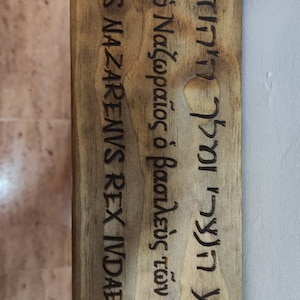 הנצרי ומלך היהוד
ὁ Ναζωραῖος ὁ βασιλεὺς τῶν
S NAZARENVS REX IVDAE